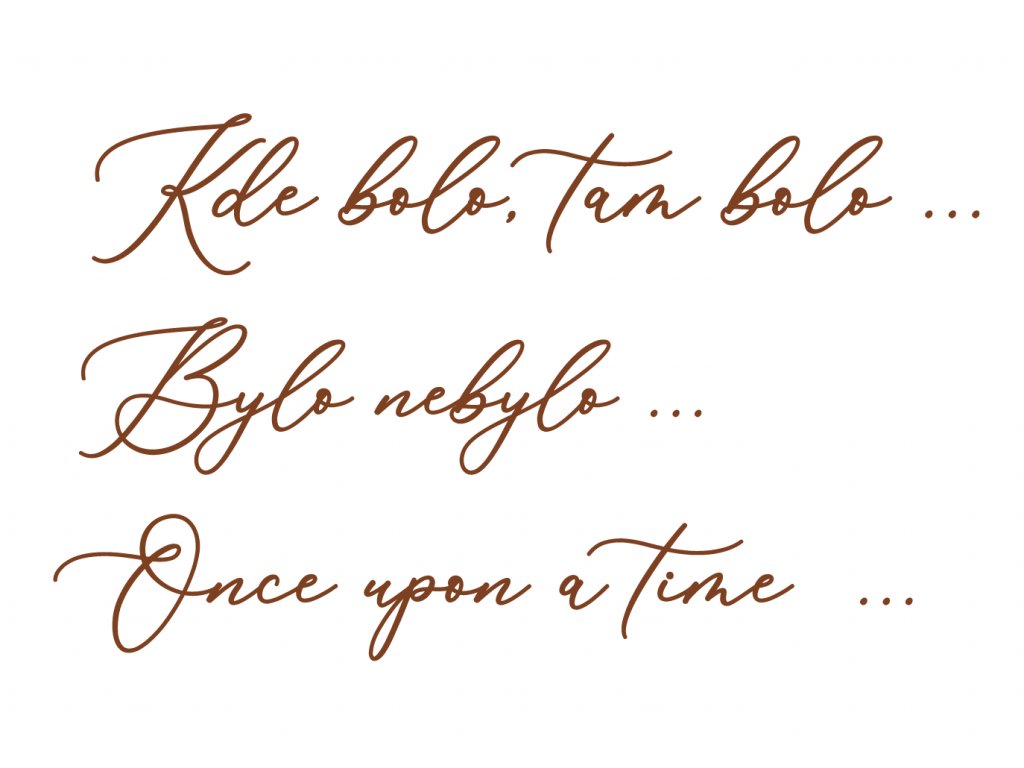 Kde bolo, tam bolo ...
Bylo nebylo ...
Once upon a time ...